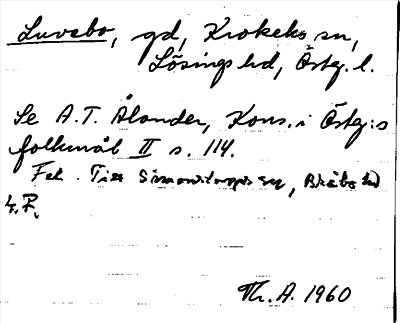 Luvebo, gd, Krokeks sn,
Lösings hd, Östg. l.
Se A.T. Ålander, Kons. i Östg:s
folkmål II s. 114.
Fel. Tiss Simonstorps sn, Bråbo hd
Th. A. 1960